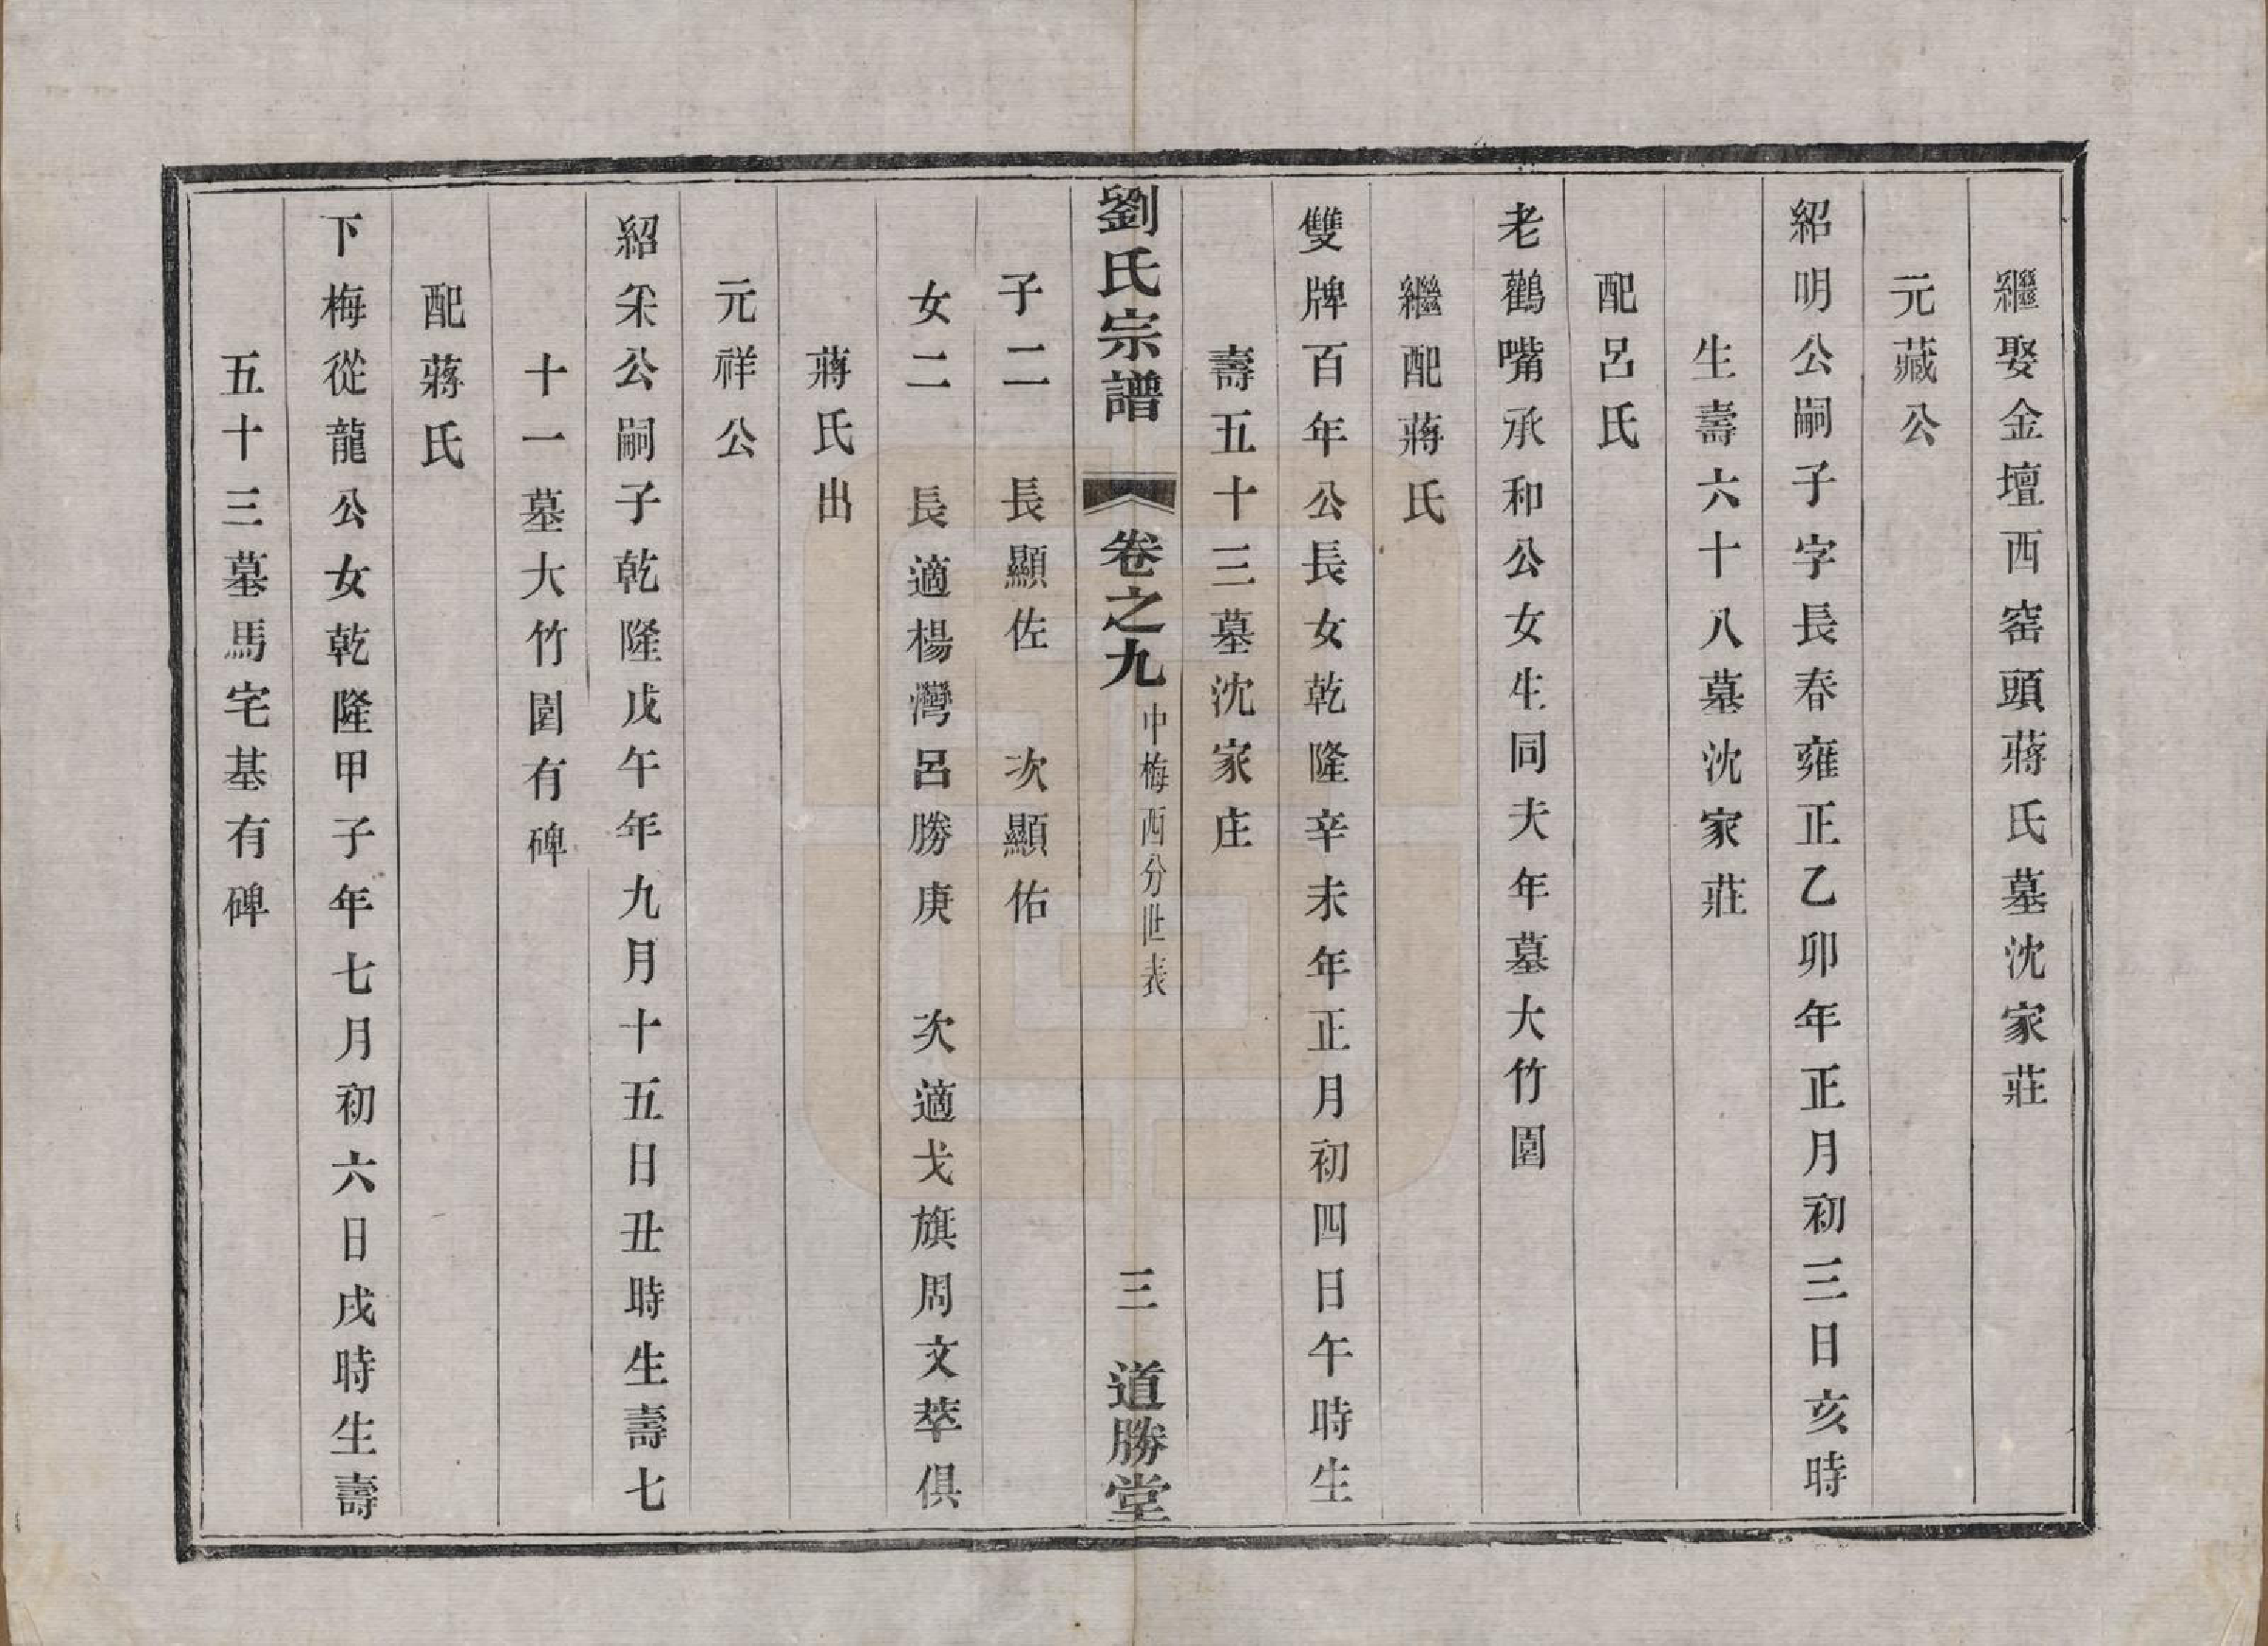 繼娶金壇西窑頭蔣氏墓沈家莊
元藏公
紹明公嗣子字長春雍正乙卯年正月初三日亥時
生壽六十八墓沈家莊
配呂氏
老鸛嘴承和公女生同夫年墓大竹園
繼配蔣氏
雙牌百年公長女乾隆辛未年正月初四日午時生
壽五十三墓沈家庄
劉氏宗譜 卷之九 中梅西分世表 三 道勝堂
子二 長顯佐 次顯佑
女二 長適楊灣呂勝庚 次適戈旗周文萃俱
蔣氏出
元祥公
紹采公嗣子乾隆戊午年九月十五日丑時生壽七
十一墓大竹園有碑
配蔣氏
下梅從龍公女乾隆甲子年七月初六日戌時生壽
五十三墓馬宅基有碑